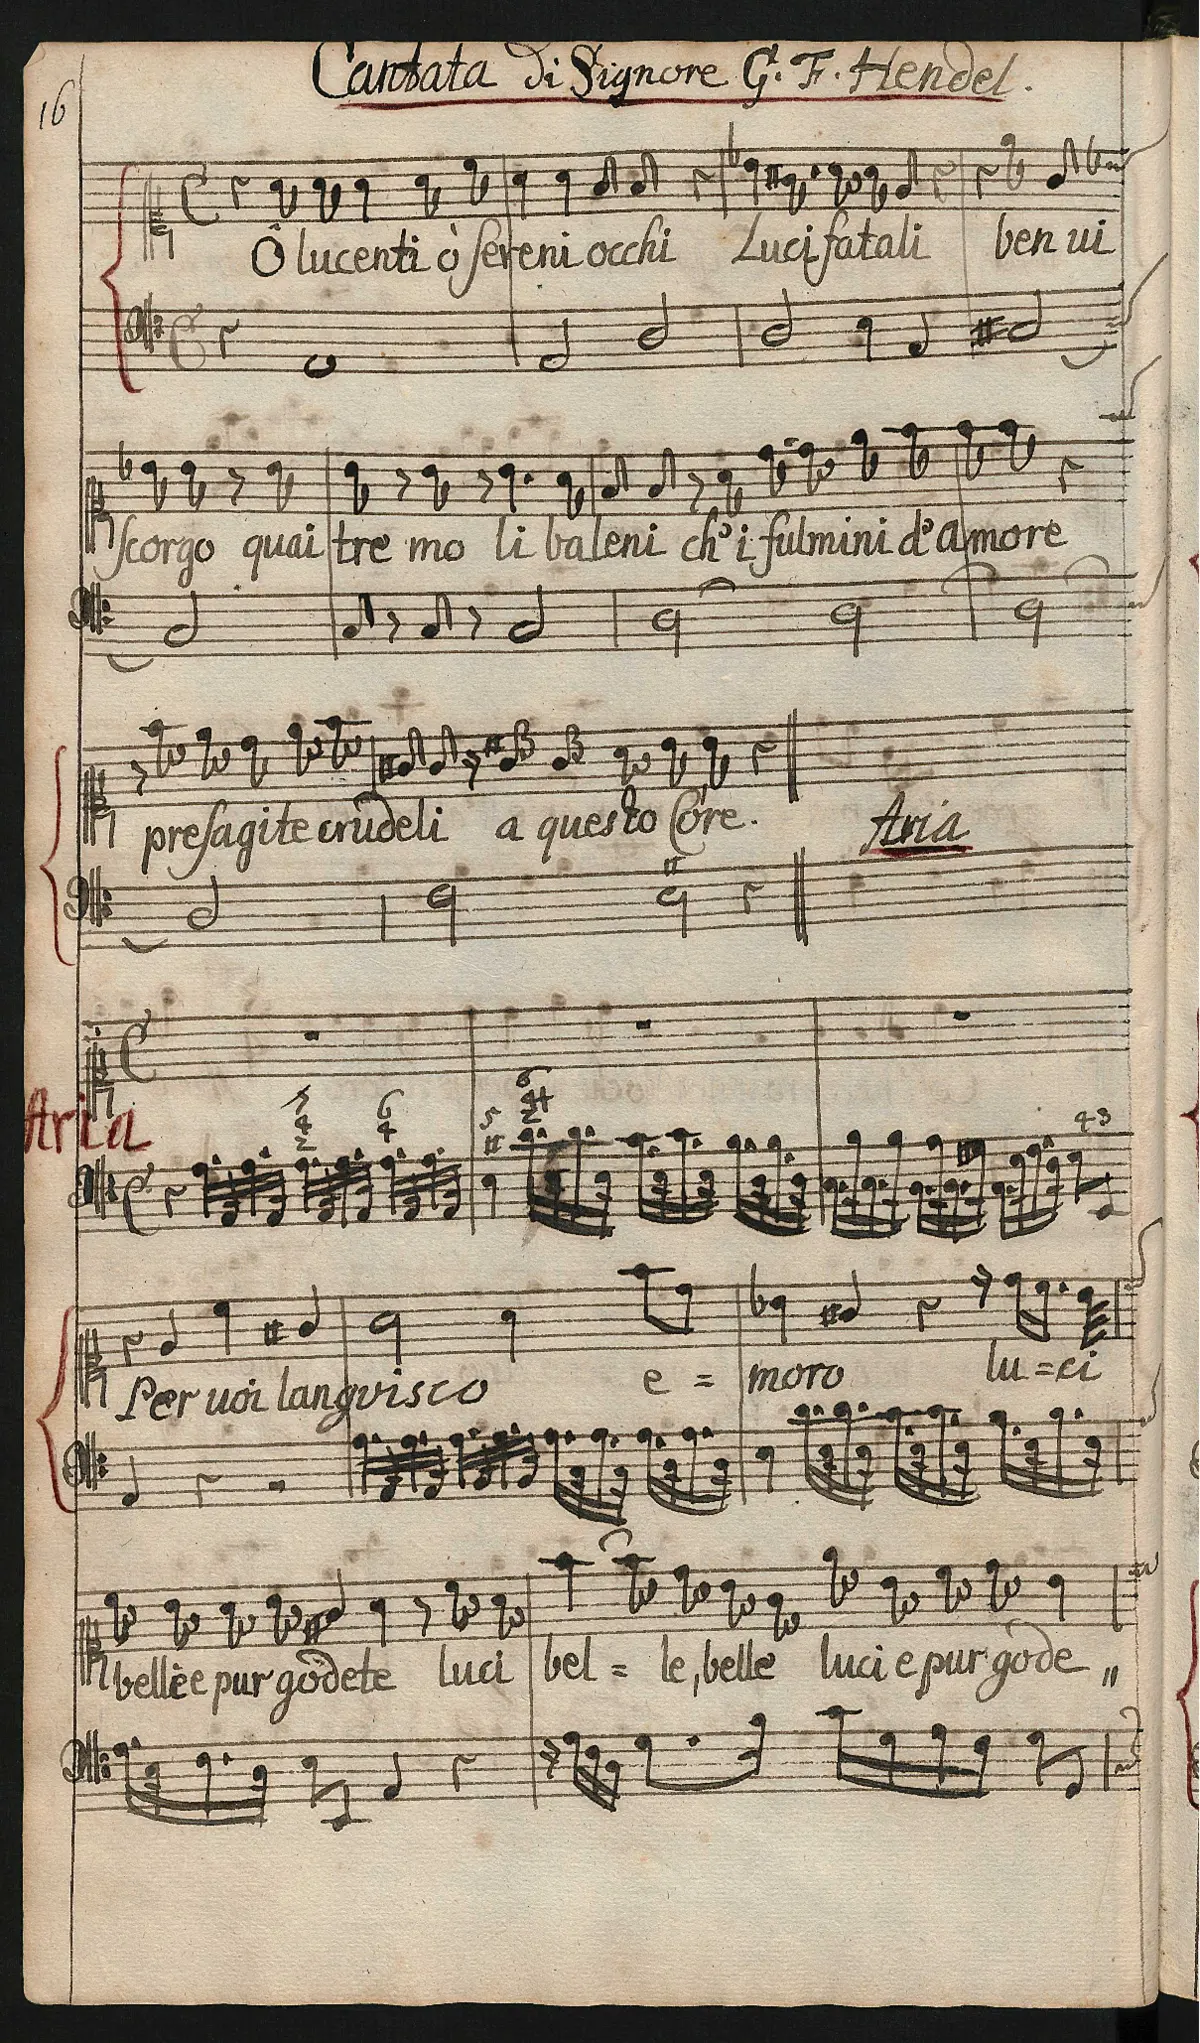 Cantata di Signore G. F. Hendel.
16
Ô lucenti ò sereni occhi Luci fatali ben ui
scorgo quai tre mo li baleni ch'i fulmini d'amore
presagite crudeli a questo Core. Aria
Aria
7 4 2 6 4 5 6 4+ 2 4 3
Per uoi languisco e = moro lu=ci
belle e pur godete luci bel = le, belle luci e pur gode „